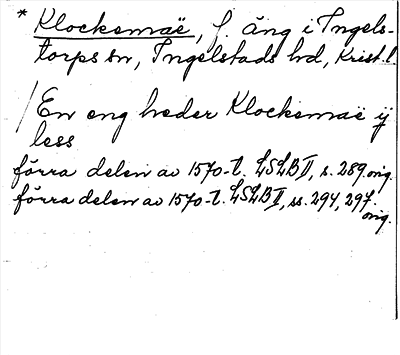 * Klockemaë, f. äng i Ingels-
torps sn, Ingelstads hd, Krist. l.
/ En eng heder Klockemaë ÿ
less
förra delen av 1570-t. LSLB II, s. 289 orig.
förra delen av 1570-t. LSLB II, ss. 294, 297.
orig.